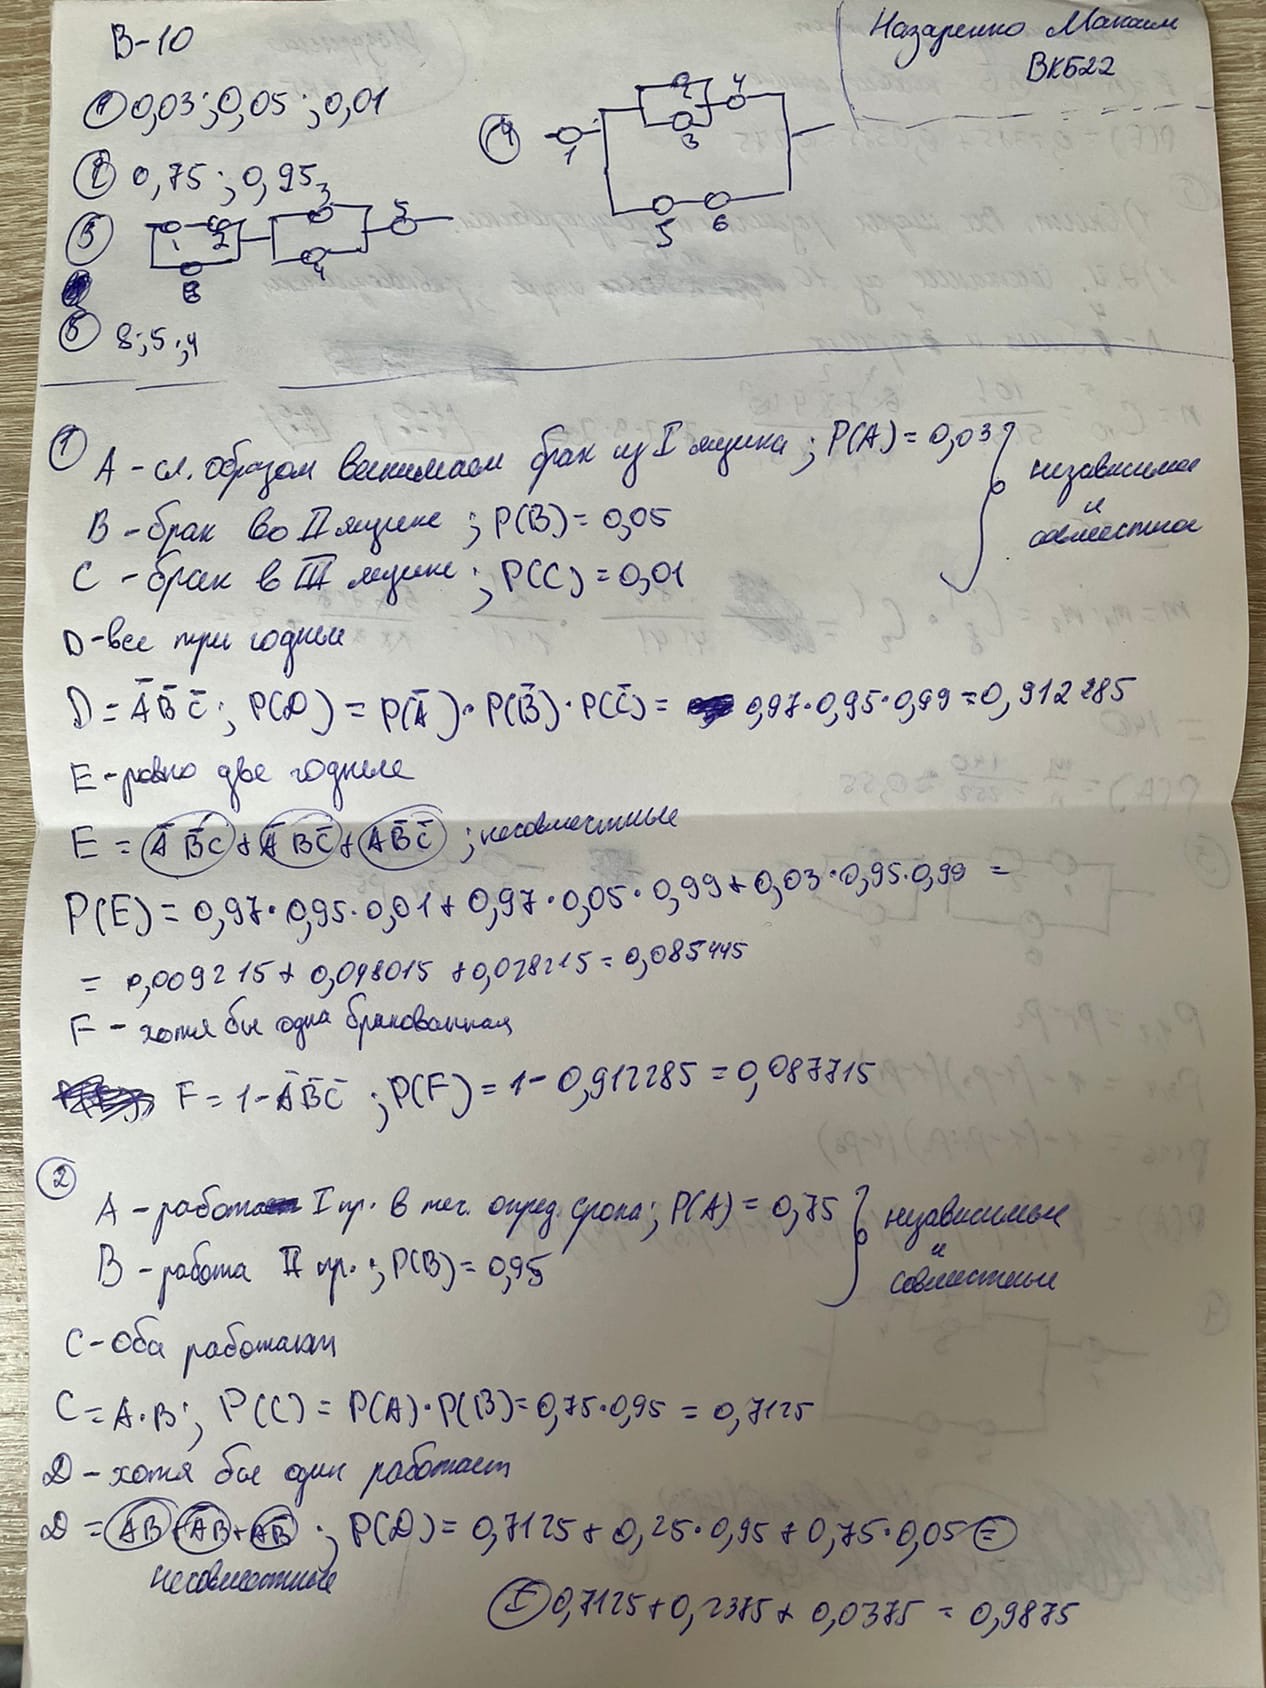 В-10
Назаренко Максим
ВКБ22
① 0,03; 0,05; 0,01
② 0,75; 0,95
③ 1 2 3 4 5
④ 1 2 3 4 5 6
⑤ 8; 5; 4
① A - сл. образом вынимаем брак из I ящика; P(A) = 0,03
B - брак во II ящике; P(B) = 0,05
C - брак в III ящике; P(C) = 0,01
независимые и совместные
D - все три годные
D = A̅ B̅ C̅; P(D) = P(A̅)·P(B̅)·P(C̅) = 0,97·0,95·0,99 = 0,912285
E - ровно две годные
E = A̅ B̅ C + A̅ B C̅ + A B̅ C̅; несовместные
P(E) = 0,97·0,95·0,01 + 0,97·0,05·0,99 + 0,03·0,95·0,99 =
= 0,009215 + 0,048015 + 0,028215 = 0,085445
F - хотя бы одна бракованная
F = 1 - A̅ B̅ C̅; P(F) = 1 - 0,912285 = 0,087715
② A - работа I пр. в теч. опред. срока; P(A) = 0,75
B - работа II пр.; P(B) = 0,95
независимые и совместные
C - Оба работают
C = A·B; P(C) = P(A)·P(B) = 0,75·0,95 = 0,7125
D - хотя бы один работает
D = AB + A̅B + AB̅; P(D) = 0,7125 + 0,25·0,95 + 0,75·0,05 =
несовместные
= 0,7125 + 0,2375 + 0,0375 = 0,9875